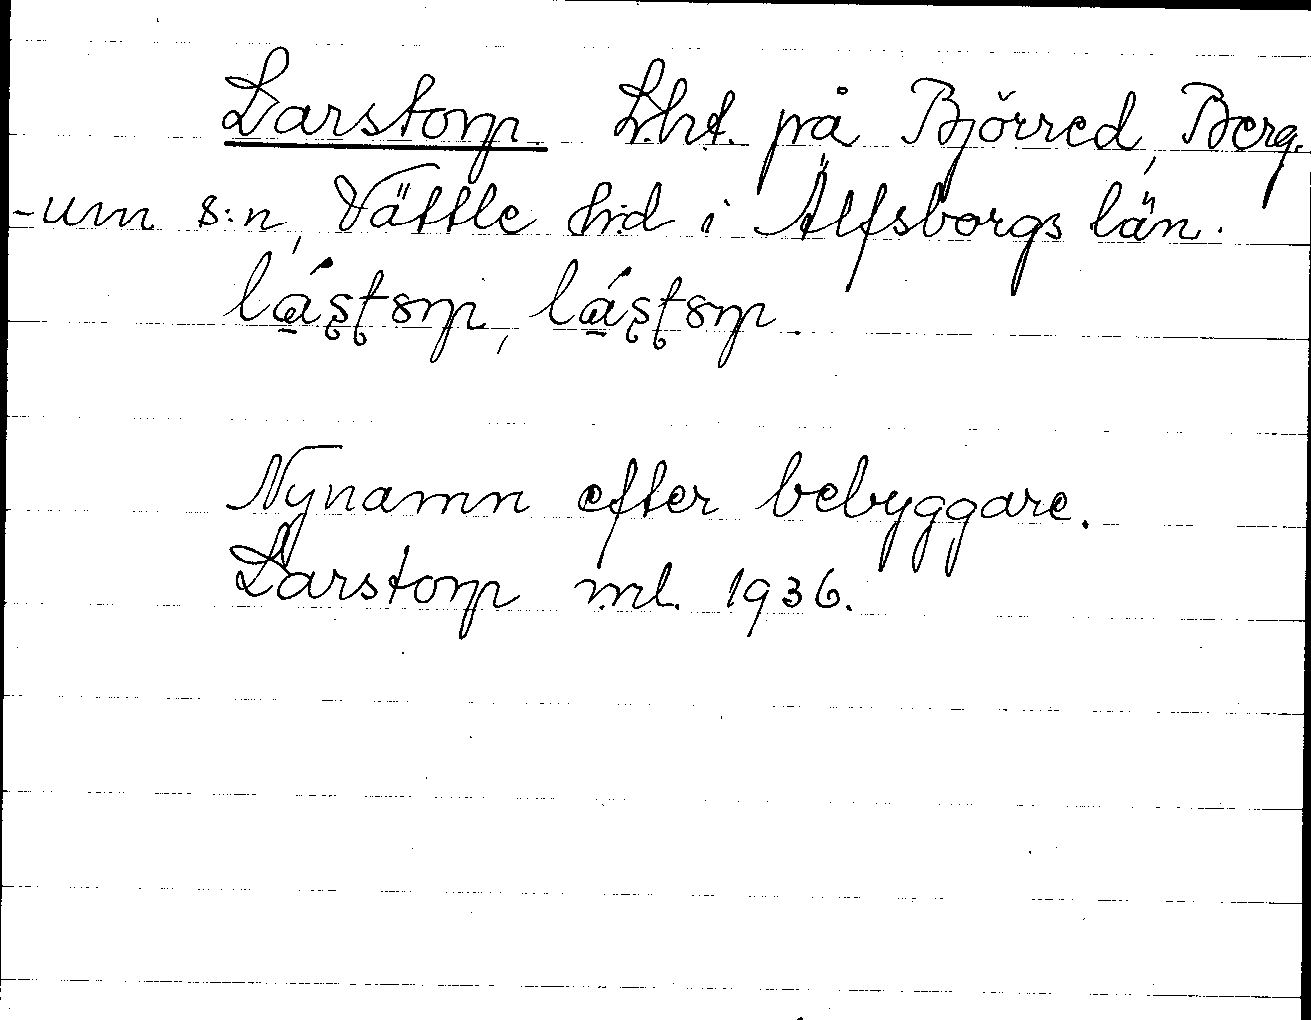 Larstorp Lht. på Björred, Berg-
-um s:n, Vättle hd i Älfsborgs län.
lá̱ʂʈɤrp, lá̱ʂʈɤrp.
Nynamn efter bebyggare.
Larstorp ml. 1936.